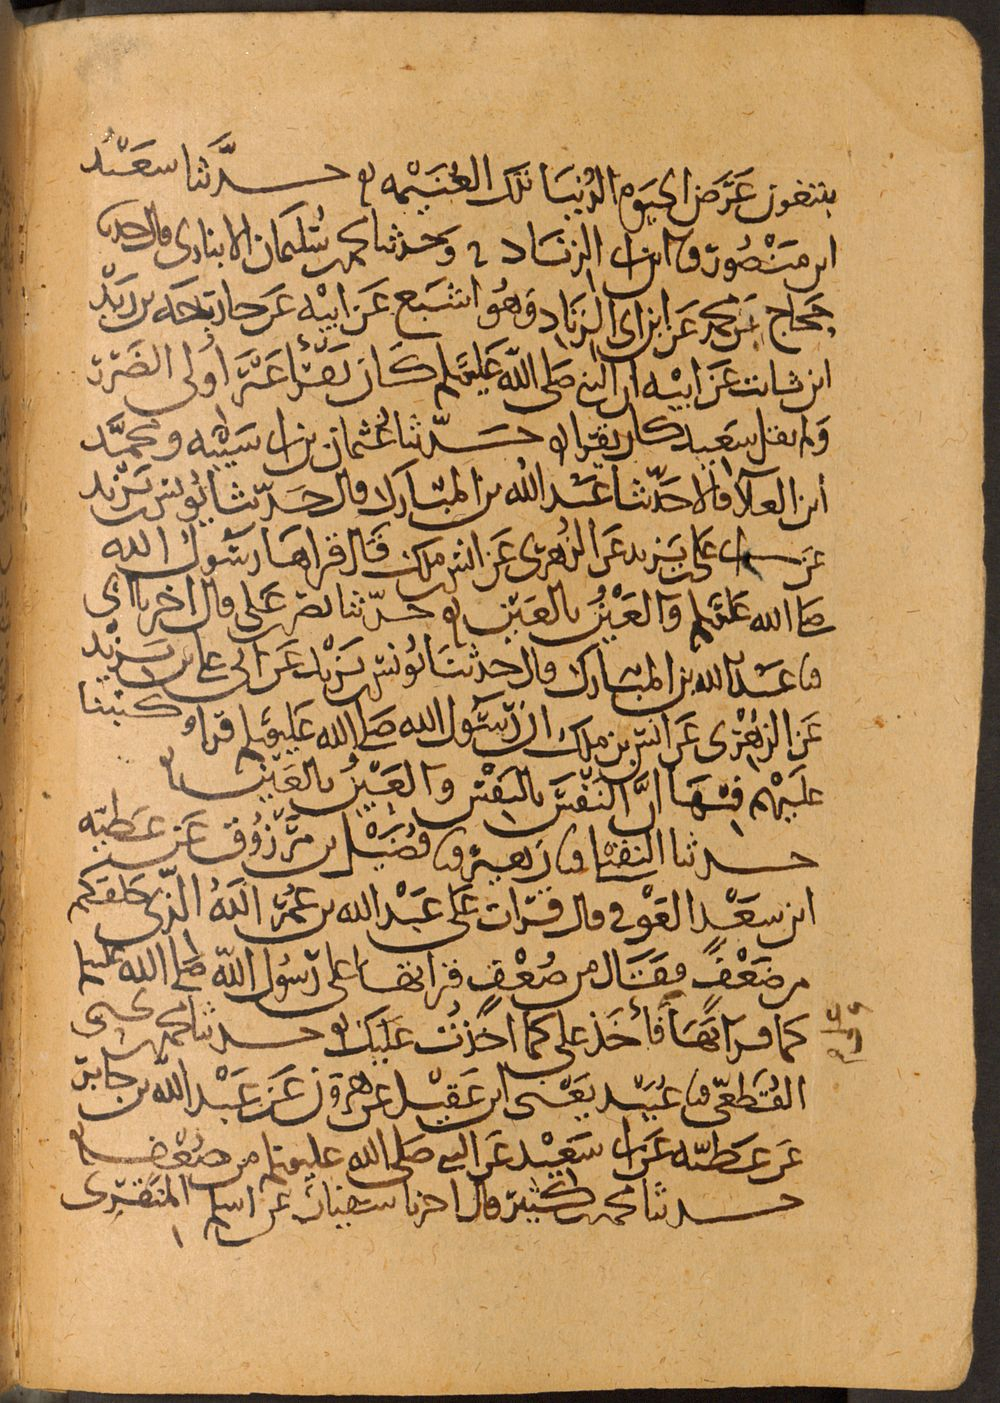 يبتغون عرض الحيوة الدنيا تلك الغنيمه حدثنا سعيد
ابن منصور نا ابن ابي الزناد وحدثنا محمد بن سليمان الانباري قال حدثنا
حجاج بن محمد عن ابن ابي الزناد وهو اشبع عن ابيه عن خارجه بن زيد
ابن ثابت عن ابيه ان النبي صلى الله عليه وسلم كان يقرأ غير اولي الضرر
ولم يقل سعيد كان يقرأ حدثنا عثمان بن ابي شيبه ومحمد
ابن العلاء قالا حدثنا عبد الله بن المبارك قال حدثنا يونس بن يزيد
عن ابي علي بن يزيد عن الزهري عن انس بن ملك قال قرأها رسول الله
صلى الله عليه وسلم والعين بالعين حدثنا نصر بن علي قال اخبرنا ابي
نا عبد الله بن المبارك قال حدثنا يونس بن يزيد عن ابي علي بن يزيد
عن الزهري عن انس بن ملك ان رسول الله صلى الله عليه وسلم قرأ وكتبنا
عليهم فيها ان النفس بالنفس والعين بالعين
حدثنا النفيلي نا زهير نا فضيل بن مرزوق عن عطيه
ابن سعد العوفي قال قرات على عبد الله بن عمر الله الذي خلقكم
من ضعف فقال من ضعف قراتها على رسول الله صلى الله عليه وسلم
كما قراتها فأخذ علي كما اخذت عليك حدثنا محمد بن يحيى
القطعي نا عبيد يعني ابن عقيل عن هرون عن عبد الله بن جابر
عن عطيه عن ابي سعيد عن النبي صلى الله عليه وسلم من ضعف
حدثنا محمد بن كثير قال اخبرنا سفيان عن اسلم المنقري